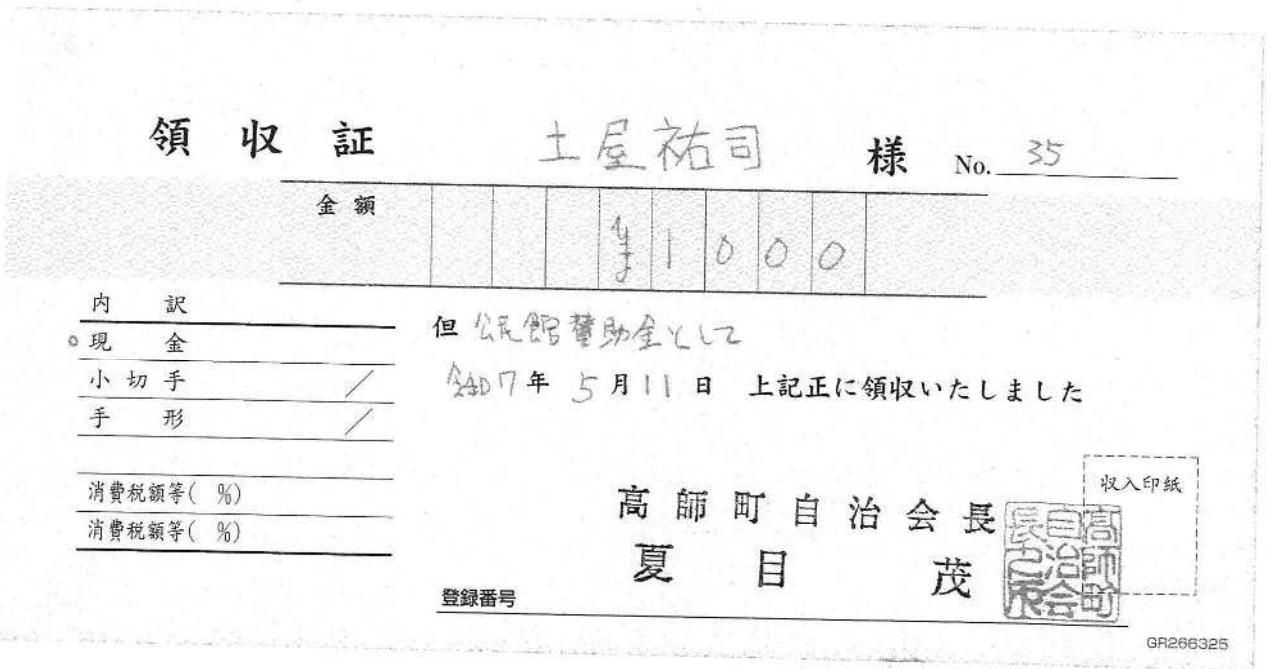 領収証 土屋祐司 様 No. 35
金額 ¥1000
内訳
現金
小切手 /
手形 /
消費税額等( %)
消費税額等( %)
但 公民館賛助金として
令和7年 5月11日 上記正に領収いたしました
収入印紙
高師町自治会長
夏目 茂
高師町自治会長之印
登録番号
GR266325